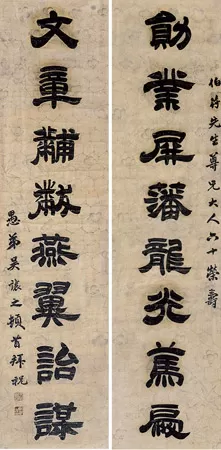 伯符先生尊兄大人六十榮壽
勛業屏藩龍光
文章黼黻燕翼詒謀
愚弟吳之頓首拜祝